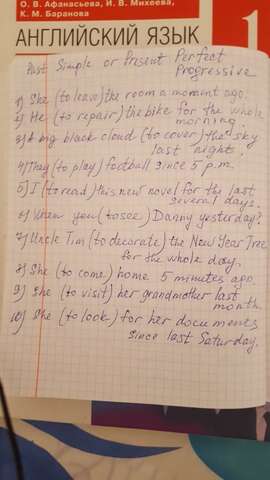 О. В. Афанасьева, И. В. Михеева,
К. М. Баранова
АНГЛИЙСКИЙ ЯЗЫК
1
Past Simple or Present Perfect
Progressive
1) She (to leave) the room a moment ago.
2) He (to repair) the bike for the whole
morning.
3) A my black cloud (to cover) the sky
last night.
4) They (to play) football since 5 p.m.
5) I (to read) this new novel for the last
several days.
6) When you (to see) Danny yesterday?
7) Uncle Tim (to decorate) the New Year Tree
for the whole day.
8) She (to come) home 5 minutes ago.
9) She (to visit) her grandmother last
month.
10) She (to look) for her documents
since last Saturday.